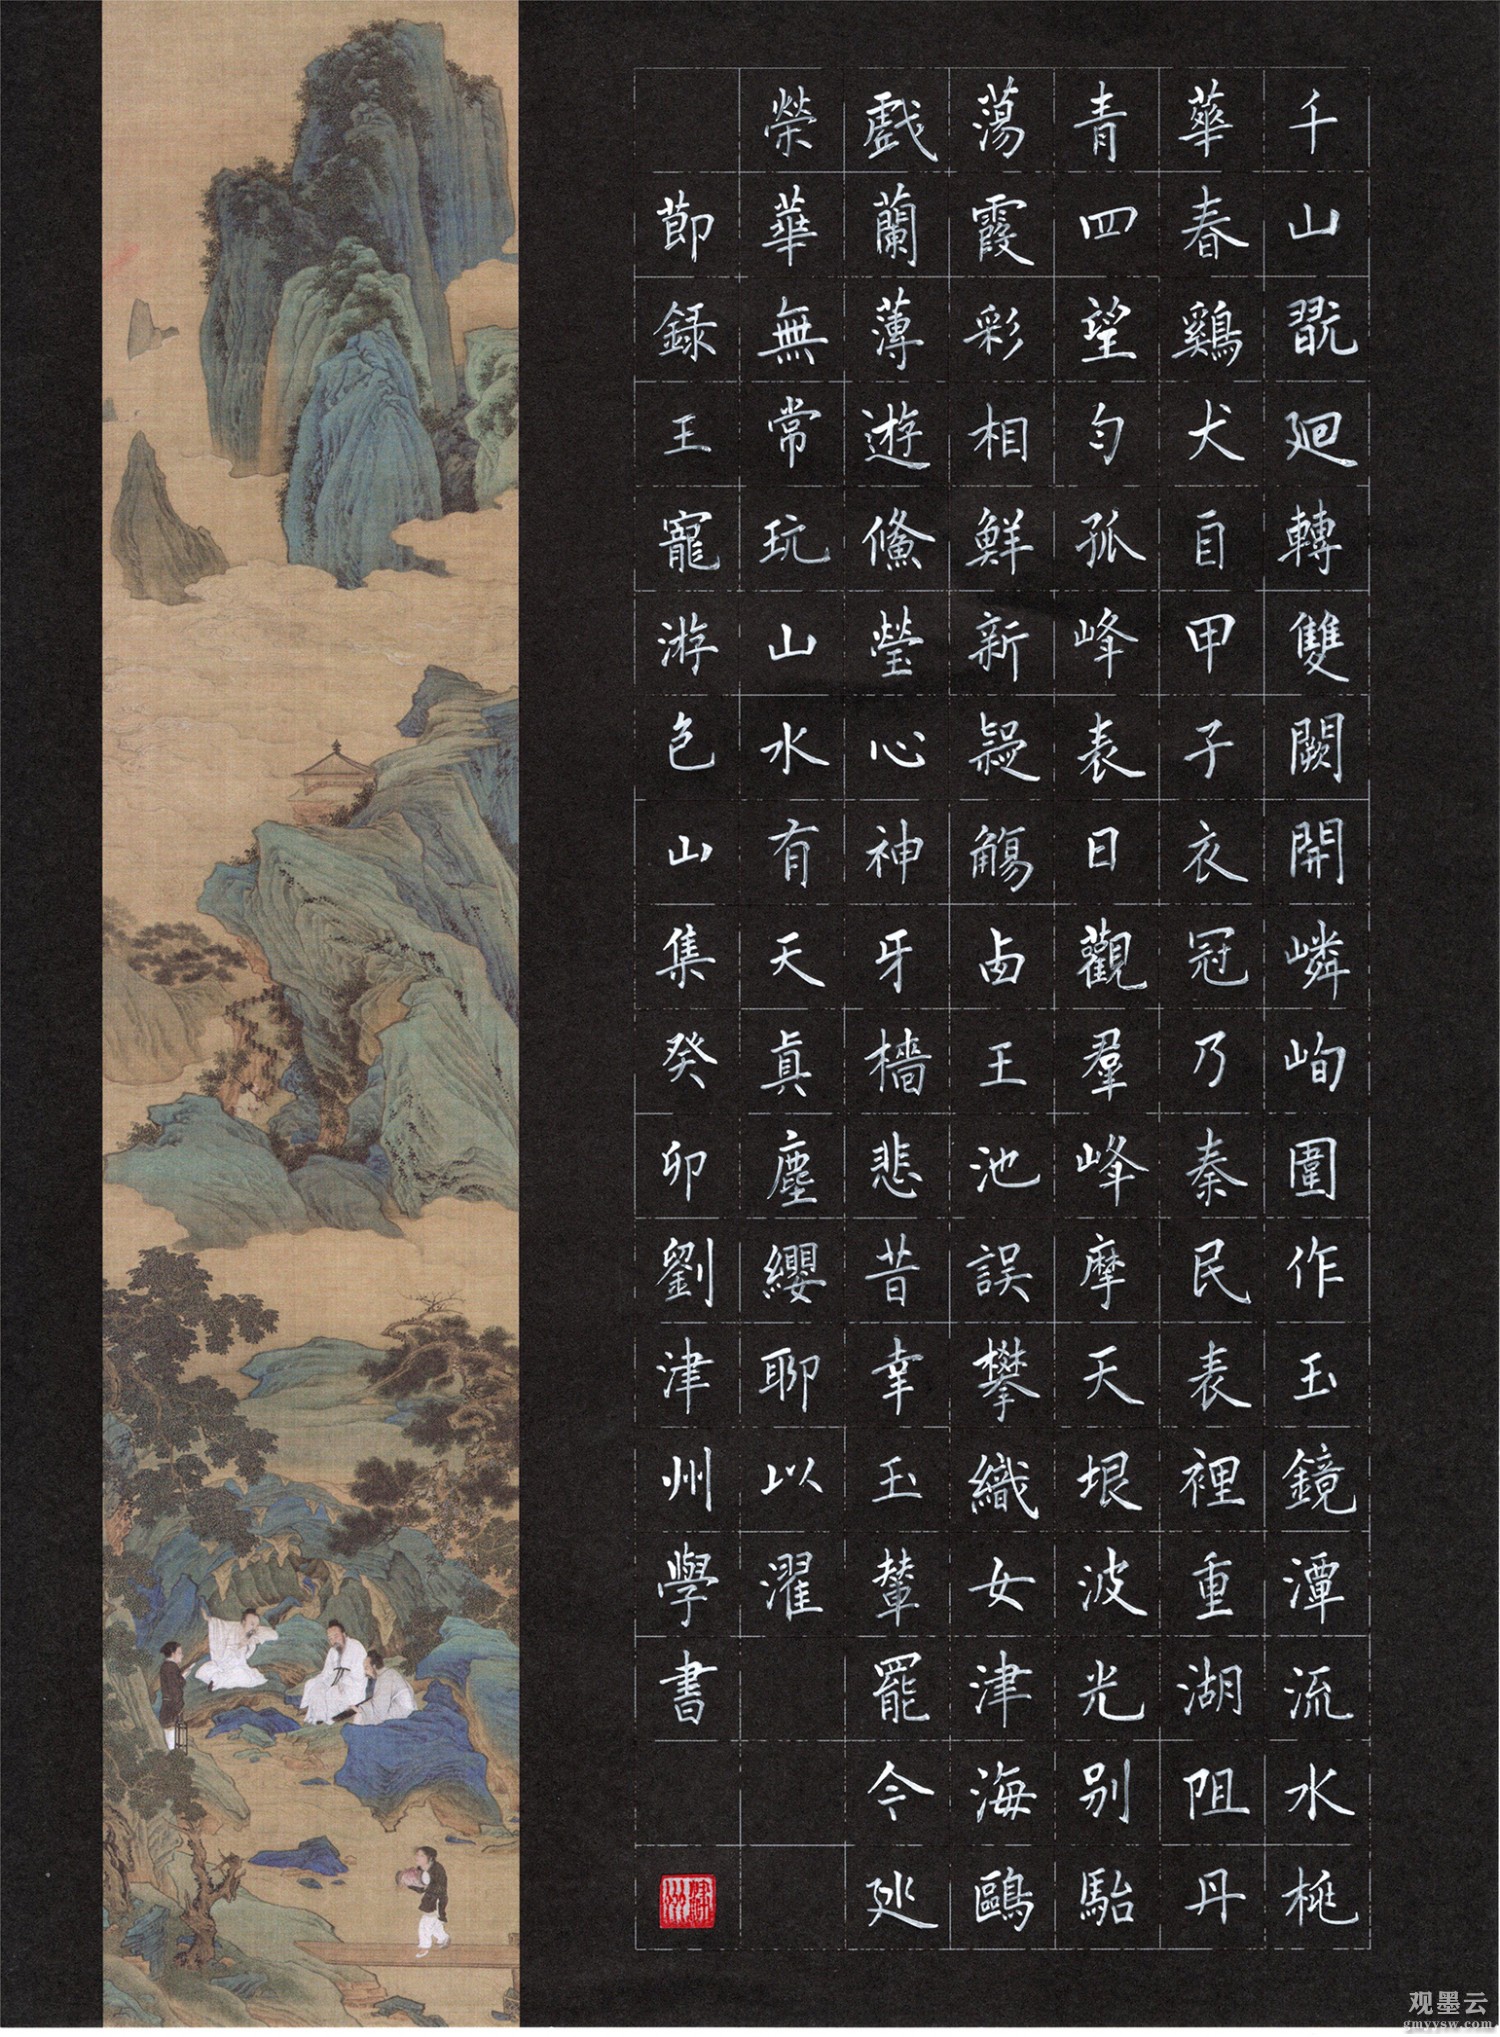 千山翫廻轉雙闕開嶙峋圍作玉鏡潭流水桃
華春鷄犬自甲子衣冠乃秦民表裡重湖阻丹
青四望勻孤峰表日觀羣峰摩天垠波光别駘
蕩霞彩相鮮新疑觴卥王池誤攀織女津海鷗
戲蘭薄遊鯈瑩心神牙檣悲昔幸玉輦罷今廵
榮華無常玩山水有天眞塵纓聊以濯
莭録王寵游包山集癸卯劉津州學書
津州
观墨云
gmyysw.com